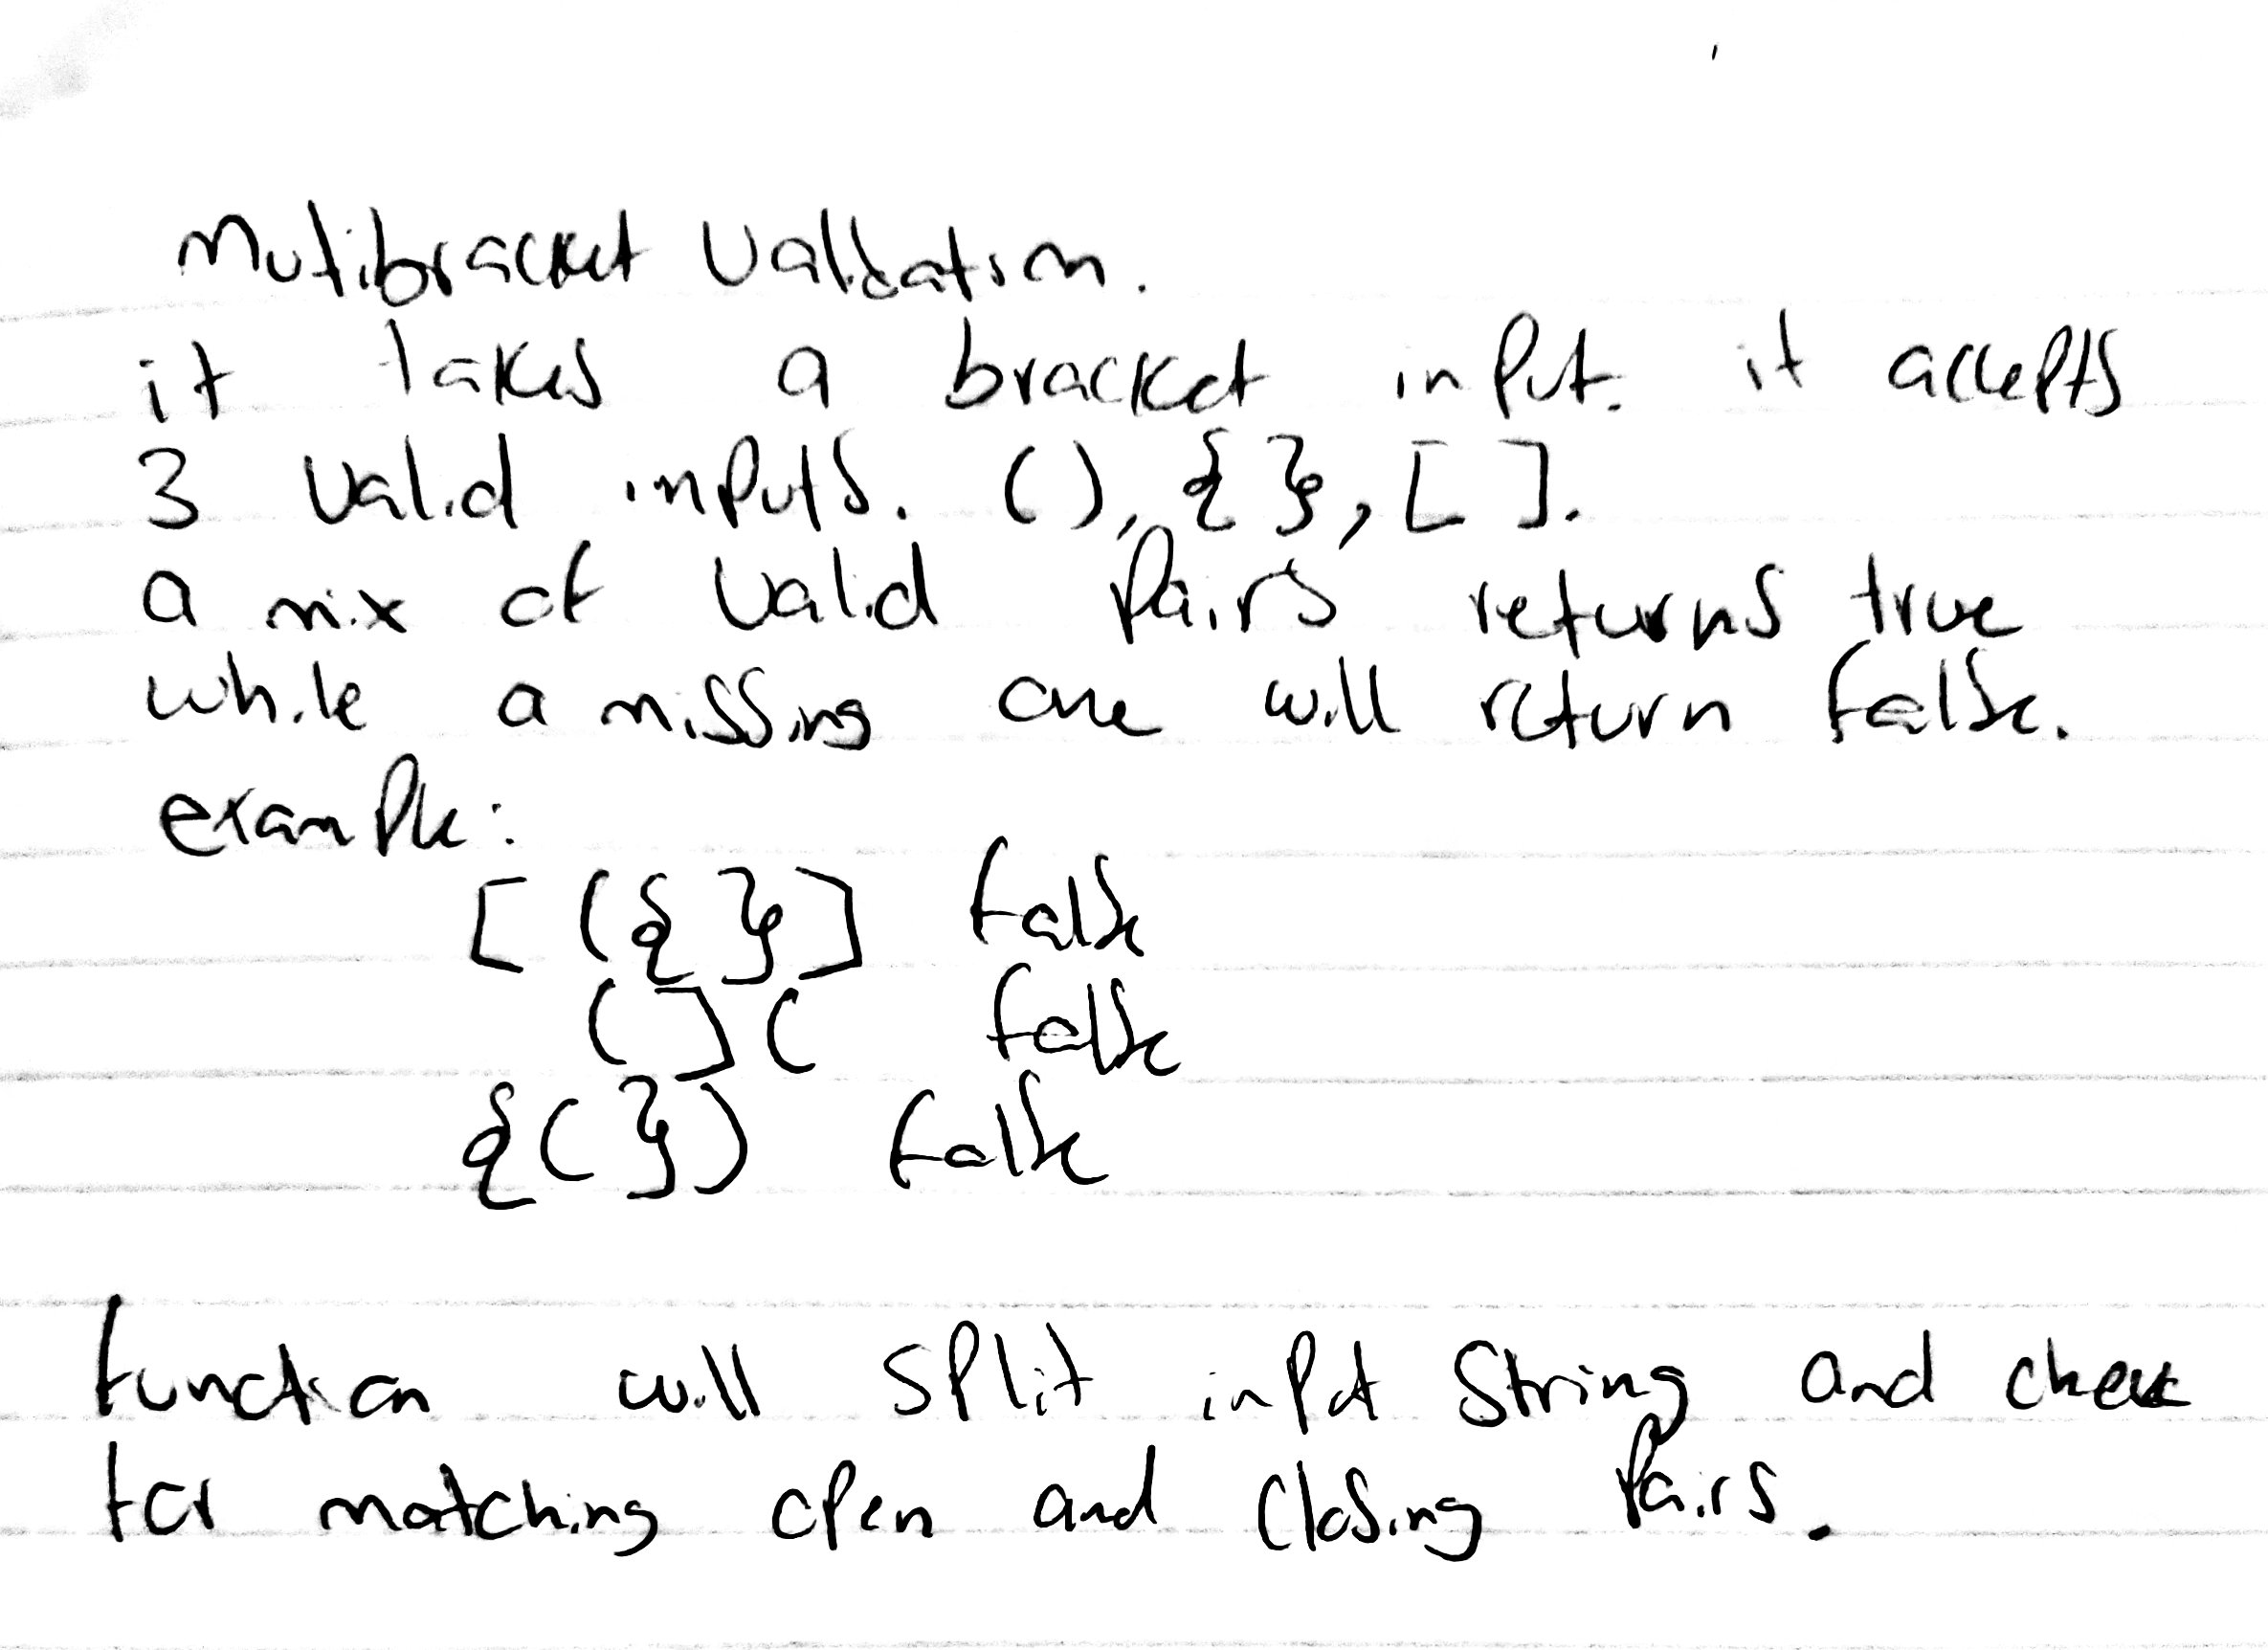 Mutibracket Validation.
it takes a bracket input. it accepts
3 valid inputs. (), {}, [ ].
a mix of valid pairs returns true
while a missing one will return false.
example:
[ ({ }] false
( ] ( false
{ ( } ) false
function will split input string and check
for matching open and closing pairs.